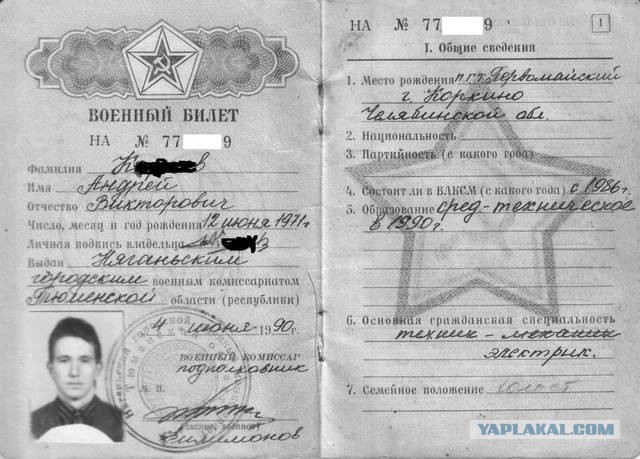 ВОЕННЫЙ БИЛЕТ
НА № 77 9
Фамилия К в
Имя Андрей
Отчество Викторович
Число, месяц и год рождения 12 июня 1971г
Личная подпись владельца
Выдан Няганьским
городским военным комиссариатом
Тюменской области (республики)
4 июня 1990г.
ВОЕННЫЙ КОМИССАР
подполковник
М. П.
(звание, подпись)
Филимонов
НА № 77 9
1
I. Общие сведения
1. Место рождения п.г.т. Первомайский
г. Коркино
Челябинской обл.
2. Национальность
3. Партийность (с какого года)
4. Состоит ли в ВЛКСМ (с какого года) с 1986г.
5. Образование сред-техническое
в 1990г.
6. Основная гражданская специальность
техник-механик
электрик.
7. Семейное положение холост
YAPLAKAL.COM